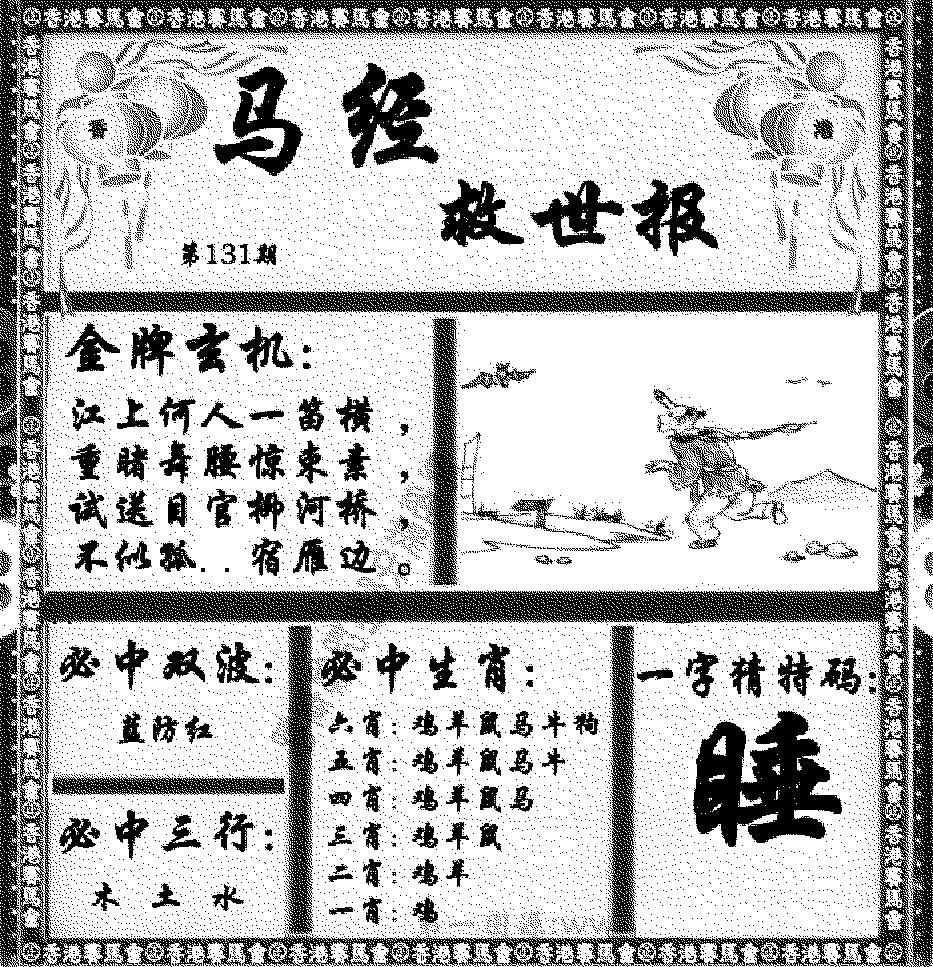 香港賽馬會 香港賽馬會 香港賽馬會 香港賽馬會 香港賽馬會 香港賽馬會 香港賽馬會
香
港
马经
救世报
第131期
金牌玄机:
江上何人一笛横,
重睹舞腰惊束素,
试送目官柳河桥,
不似孤..宿雁边。
必中双波:
蓝防红
必中三行:
木 土 水
必中生肖:
六肖:鸡羊鼠马牛狗
五肖:鸡羊鼠马牛
四肖:鸡羊鼠马
三肖:鸡羊鼠
二肖:鸡羊
一肖:鸡
一字猜特码:
睡
香港賽馬會 香港賽馬會 香港賽馬會 香港賽馬會 香港賽馬會 香港賽馬會 香港賽馬會